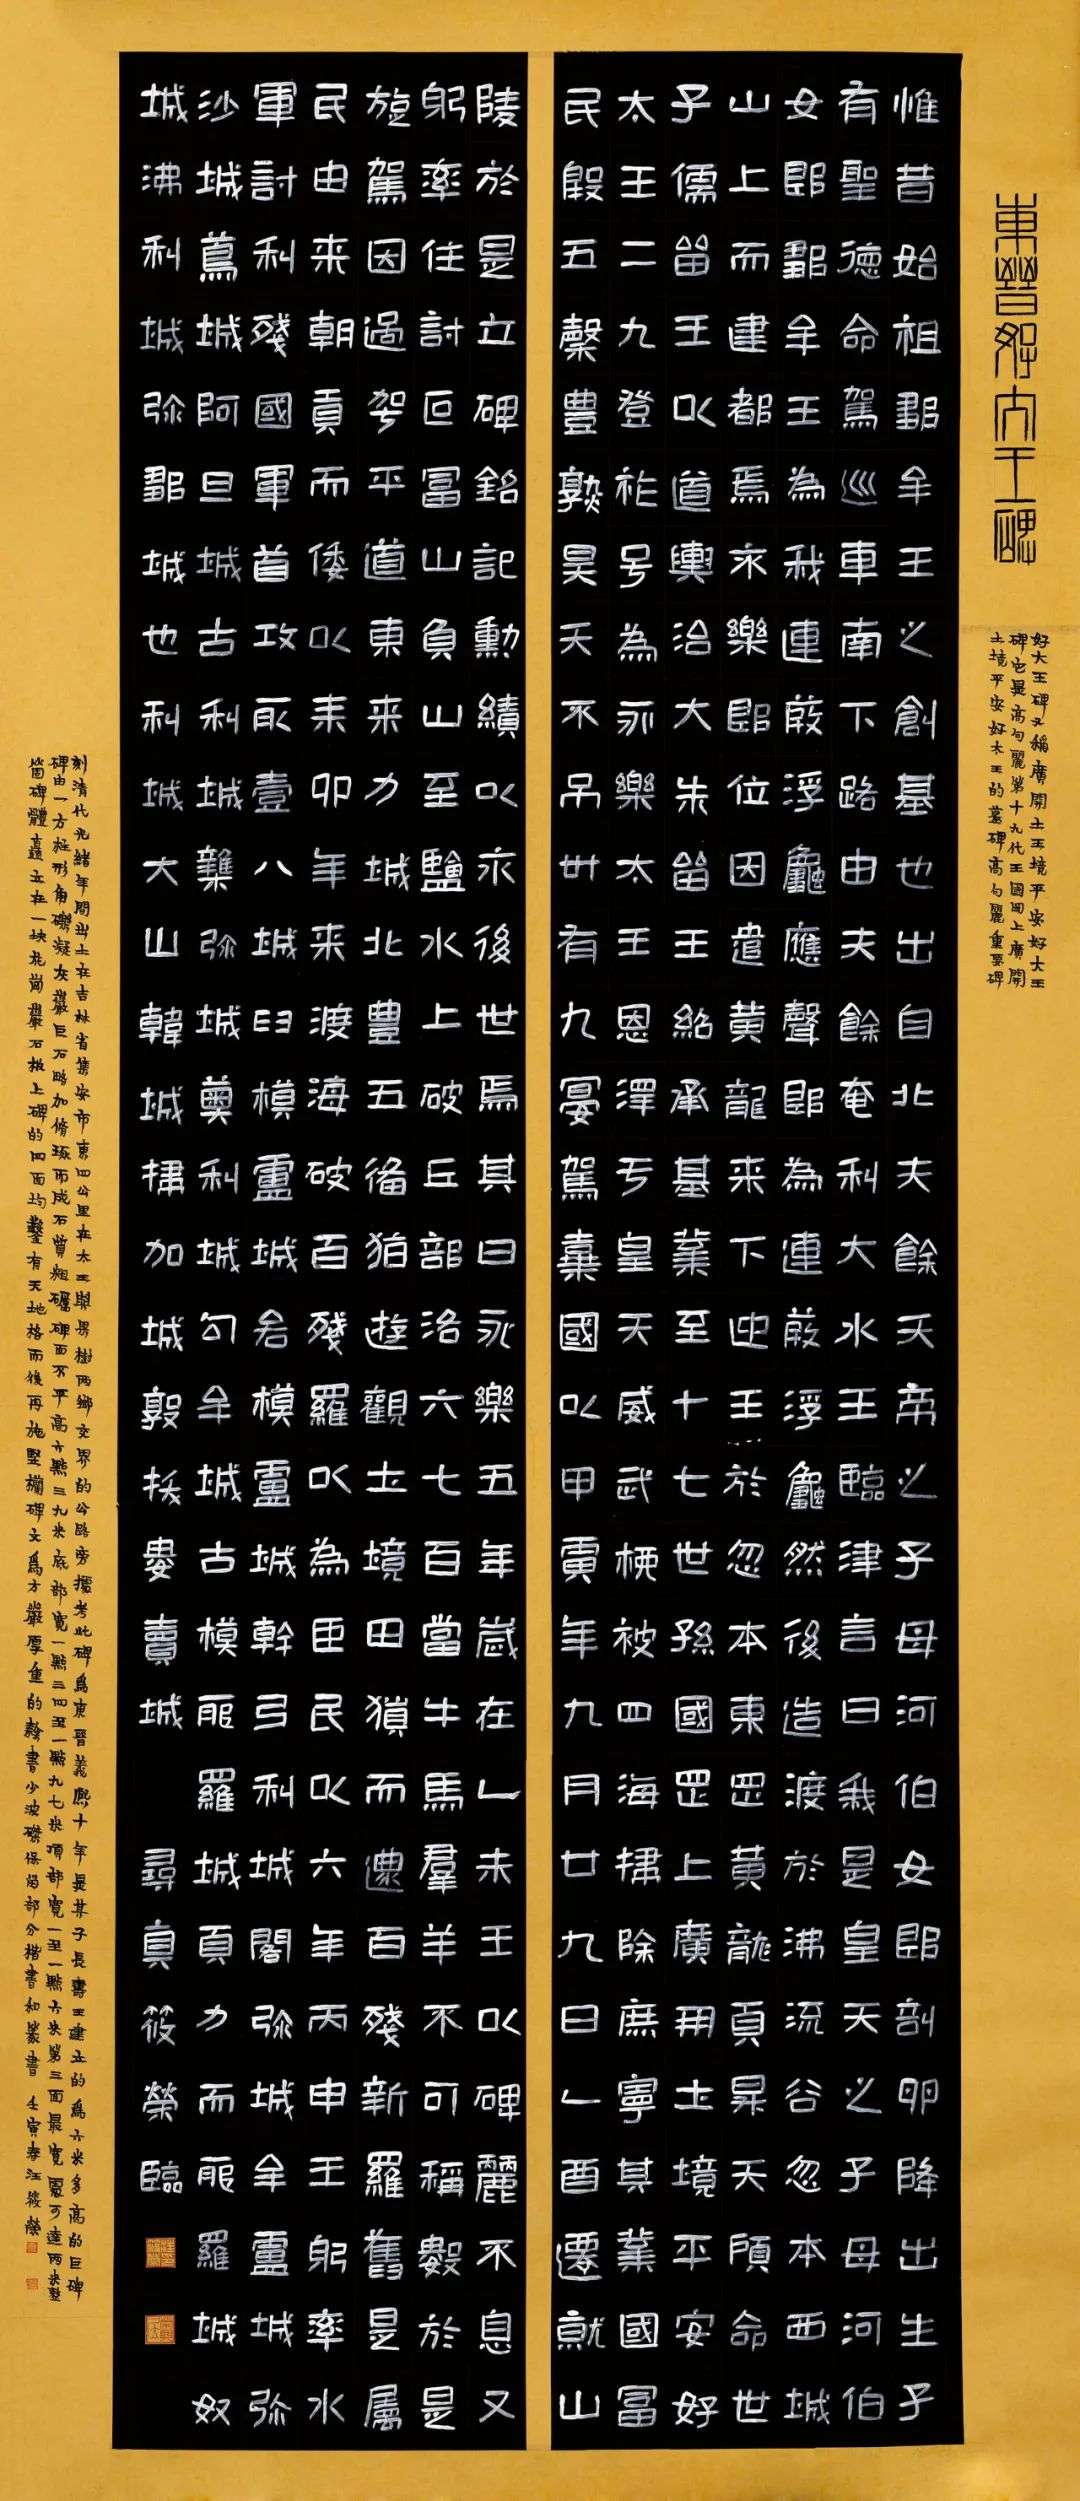 東晉好大王碑
好大王碑又稱廣開土王境平安好大王
碑它是高句麗第十九代王國罡上廣開
土境平安好太王的墓碑高句麗重要碑
惟昔始祖鄒牟王之創基也出自北夫餘天帝之子母河伯女郎剖卵降出生子
有聖德命駕巡車南下路由夫餘奄利大水王臨津言曰我是皇天之子母河伯
女郎鄒牟王為我連葭浮龜應聲即為連葭浮龜然後造渡於沸流谷忽本西城
山上而建都焉永樂即位因遣黃龍来下迎王於忽本東罡黃龍頁昇天顧命世
子儒留王以道輿治大朱留王紹承基業至十七世孫國罡上廣開土境平安好
太王二九登祚号為永樂太王恩澤于皇天威武柳被四海掃除庶寧其業國富
民殷五穀豊熟昊天不弔卅有九宴駕棄國以甲寅年九月廿九日乙酉遷就山
陵於是立碑銘記勳績以永後世焉其曰永樂五年歲在乙未王以碑麗不息又
躬率住討叵富山負山至鹽水上破丘部洛六七百當牛馬羣羊不可稱數於是
旋駕因過駕平道東来力城北豊五備猶遊觀土境田獵而還百殘新羅舊是屬
民由来朝貢而倭以耒卯年来渡海破百殘羅以為臣民以六年丙申王躬率水
軍討利殘國軍首攻取壹八城臼模盧城各模盧城幹弓利城閣弥城牟盧城弥
沙城蔦城阿旦城古利城雜弥城奧利城句牟城古模耶羅城頁力而耶羅城奴
城沸利城弥鄒城也利城大山韓城掃加城敦拔婁賣城 尋真筱榮臨
刻清代光緒年間出土在吉林省集安市東四公里在太王與果樹兩鄉交界的公路旁據考此碑爲東晉義熙十年是其子長壽王建立的爲六米多高的巨碑
碑由一方柱形角礫凝灰巖巨石略加脩琢而成石質粗礪碑面不平高六點三九米底部寬一點三四至一點九七米頂部寬一至一點六米第三面最寬處可達兩米整
箇碑體矗立在一塊花崗巖石板上碑的四面均鑿有天地格而後再施竪欄碑文爲方嚴厚重的隸書少波磔保留部分楷書和篆書 壬寅春汪筱榮